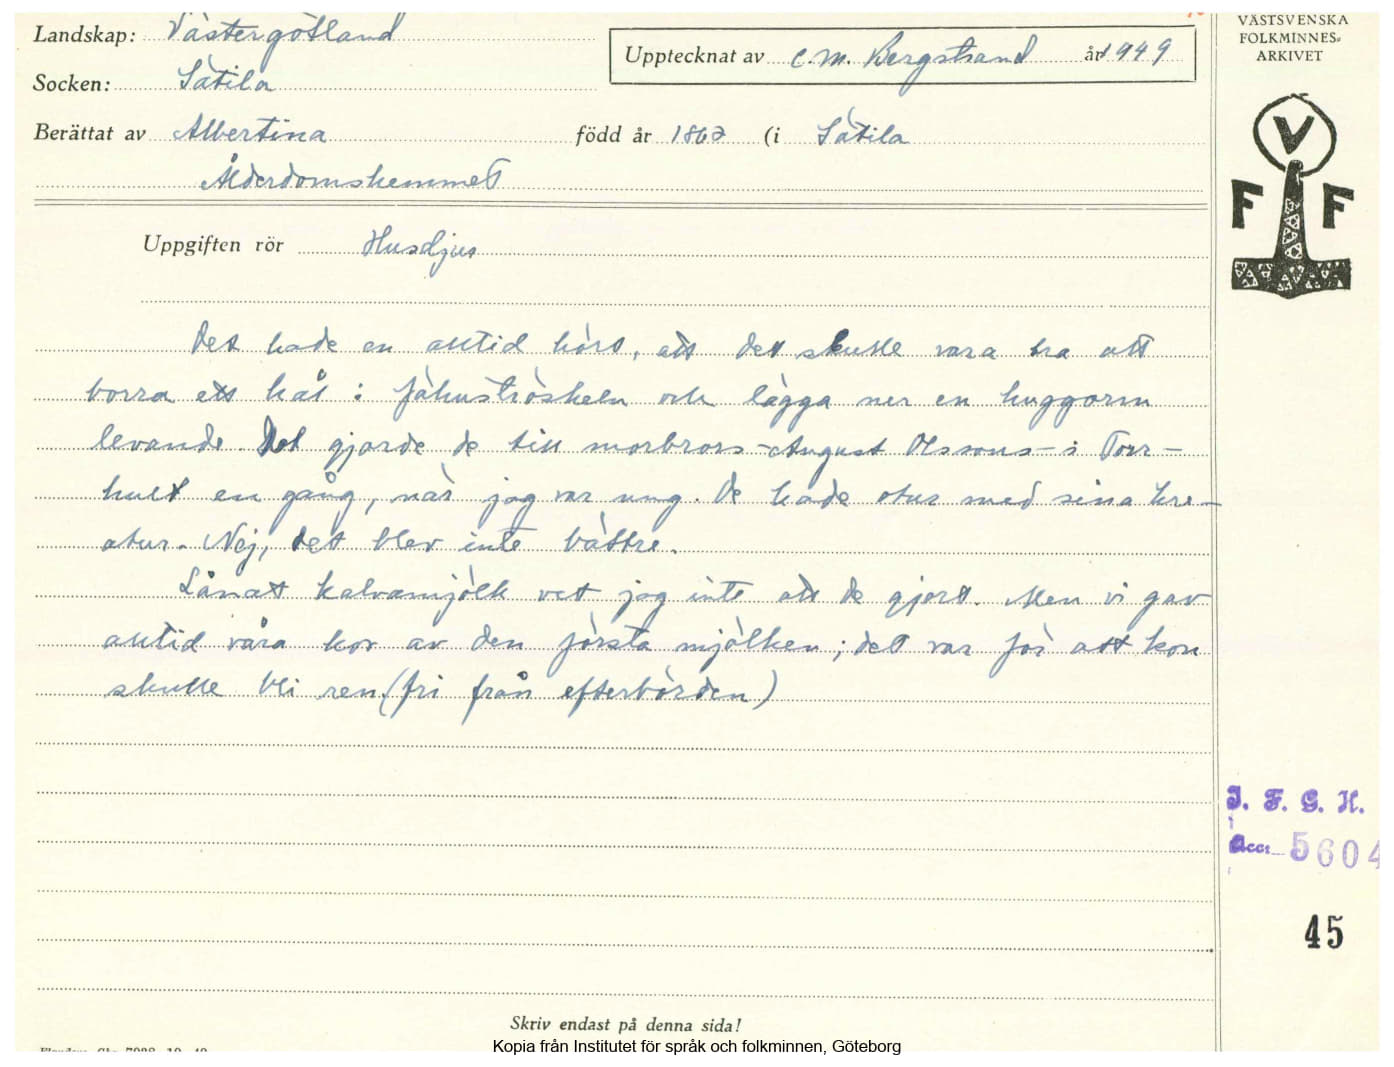 Landskap: Västergötland
Socken: Sätila
Upptecknat av C. M. Bergstrand år 1949
Berättat av Albertina född år 1862 (i Sätila
Ålderdomshemmet
Uppgiften rör Husdjur
VÄSTSVENSKA
FOLKMINNES-
ARKIVET
V
F F
Det hade en alltid hört, att det skulle vara bra att
borra ett hål i fähuströskeln och lägga ner en huggorm
levande. Det gjorde de till morbrors – August Olssons – i Torr-
hult en gång, när jag var ung. De hade otur med sina kre-
atur. Nej, det blev inte bättre.
Lånat kalvamjölk vet jag inte att de gjort. Men vi gav
alltid våra kor av den första mjölken; det var för att kon
skulle bli ren (fri från efterbörden)
I. F. G. H.
Acc: 5604
45
Skriv endast på denna sida!
Kopia från Institutet för språk och folkminnen, Göteborg